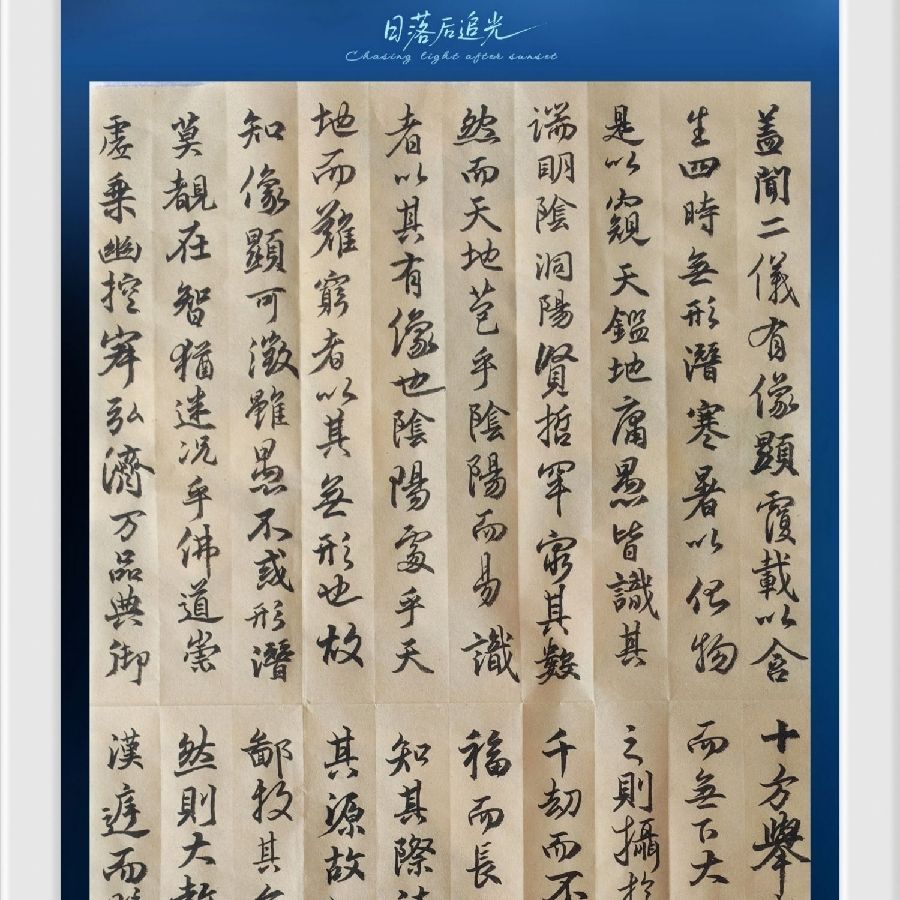 日落后追光
Chasing light after sunset
蓋聞二儀有像顯覆載以含
生四時無形潛寒暑以化物
是以窺天鑑地庸愚皆識其
端明陰洞陽賢哲罕窮其數
然而天地苞乎陰陽而易識
者以其有像也陰陽處乎天
地而難窮者以其無形也故
知像顯可徵雖愚不惑形潛
莫覩在智猶迷况乎佛道崇
虛乘幽控寂弘濟万品典御
十方舉
而無下大
之則攝於
千劫而不
福而長
知其際
其源故
鄙拔其
然則大教
漢庭而